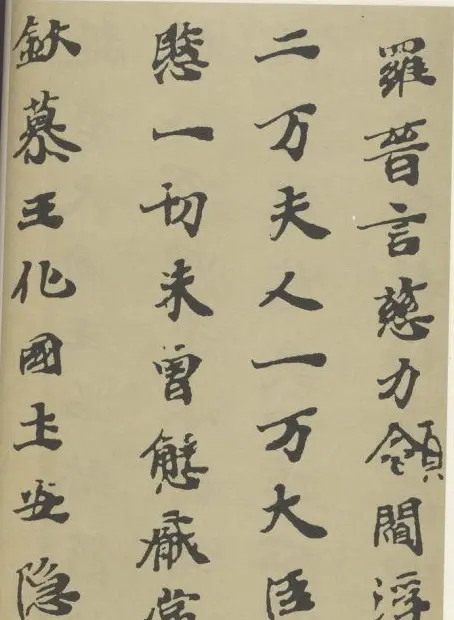 羅晉言慈力領閻浮
二万夫人一万大臣
愍一切未曾懈厭常
欽慕王化國土安隐